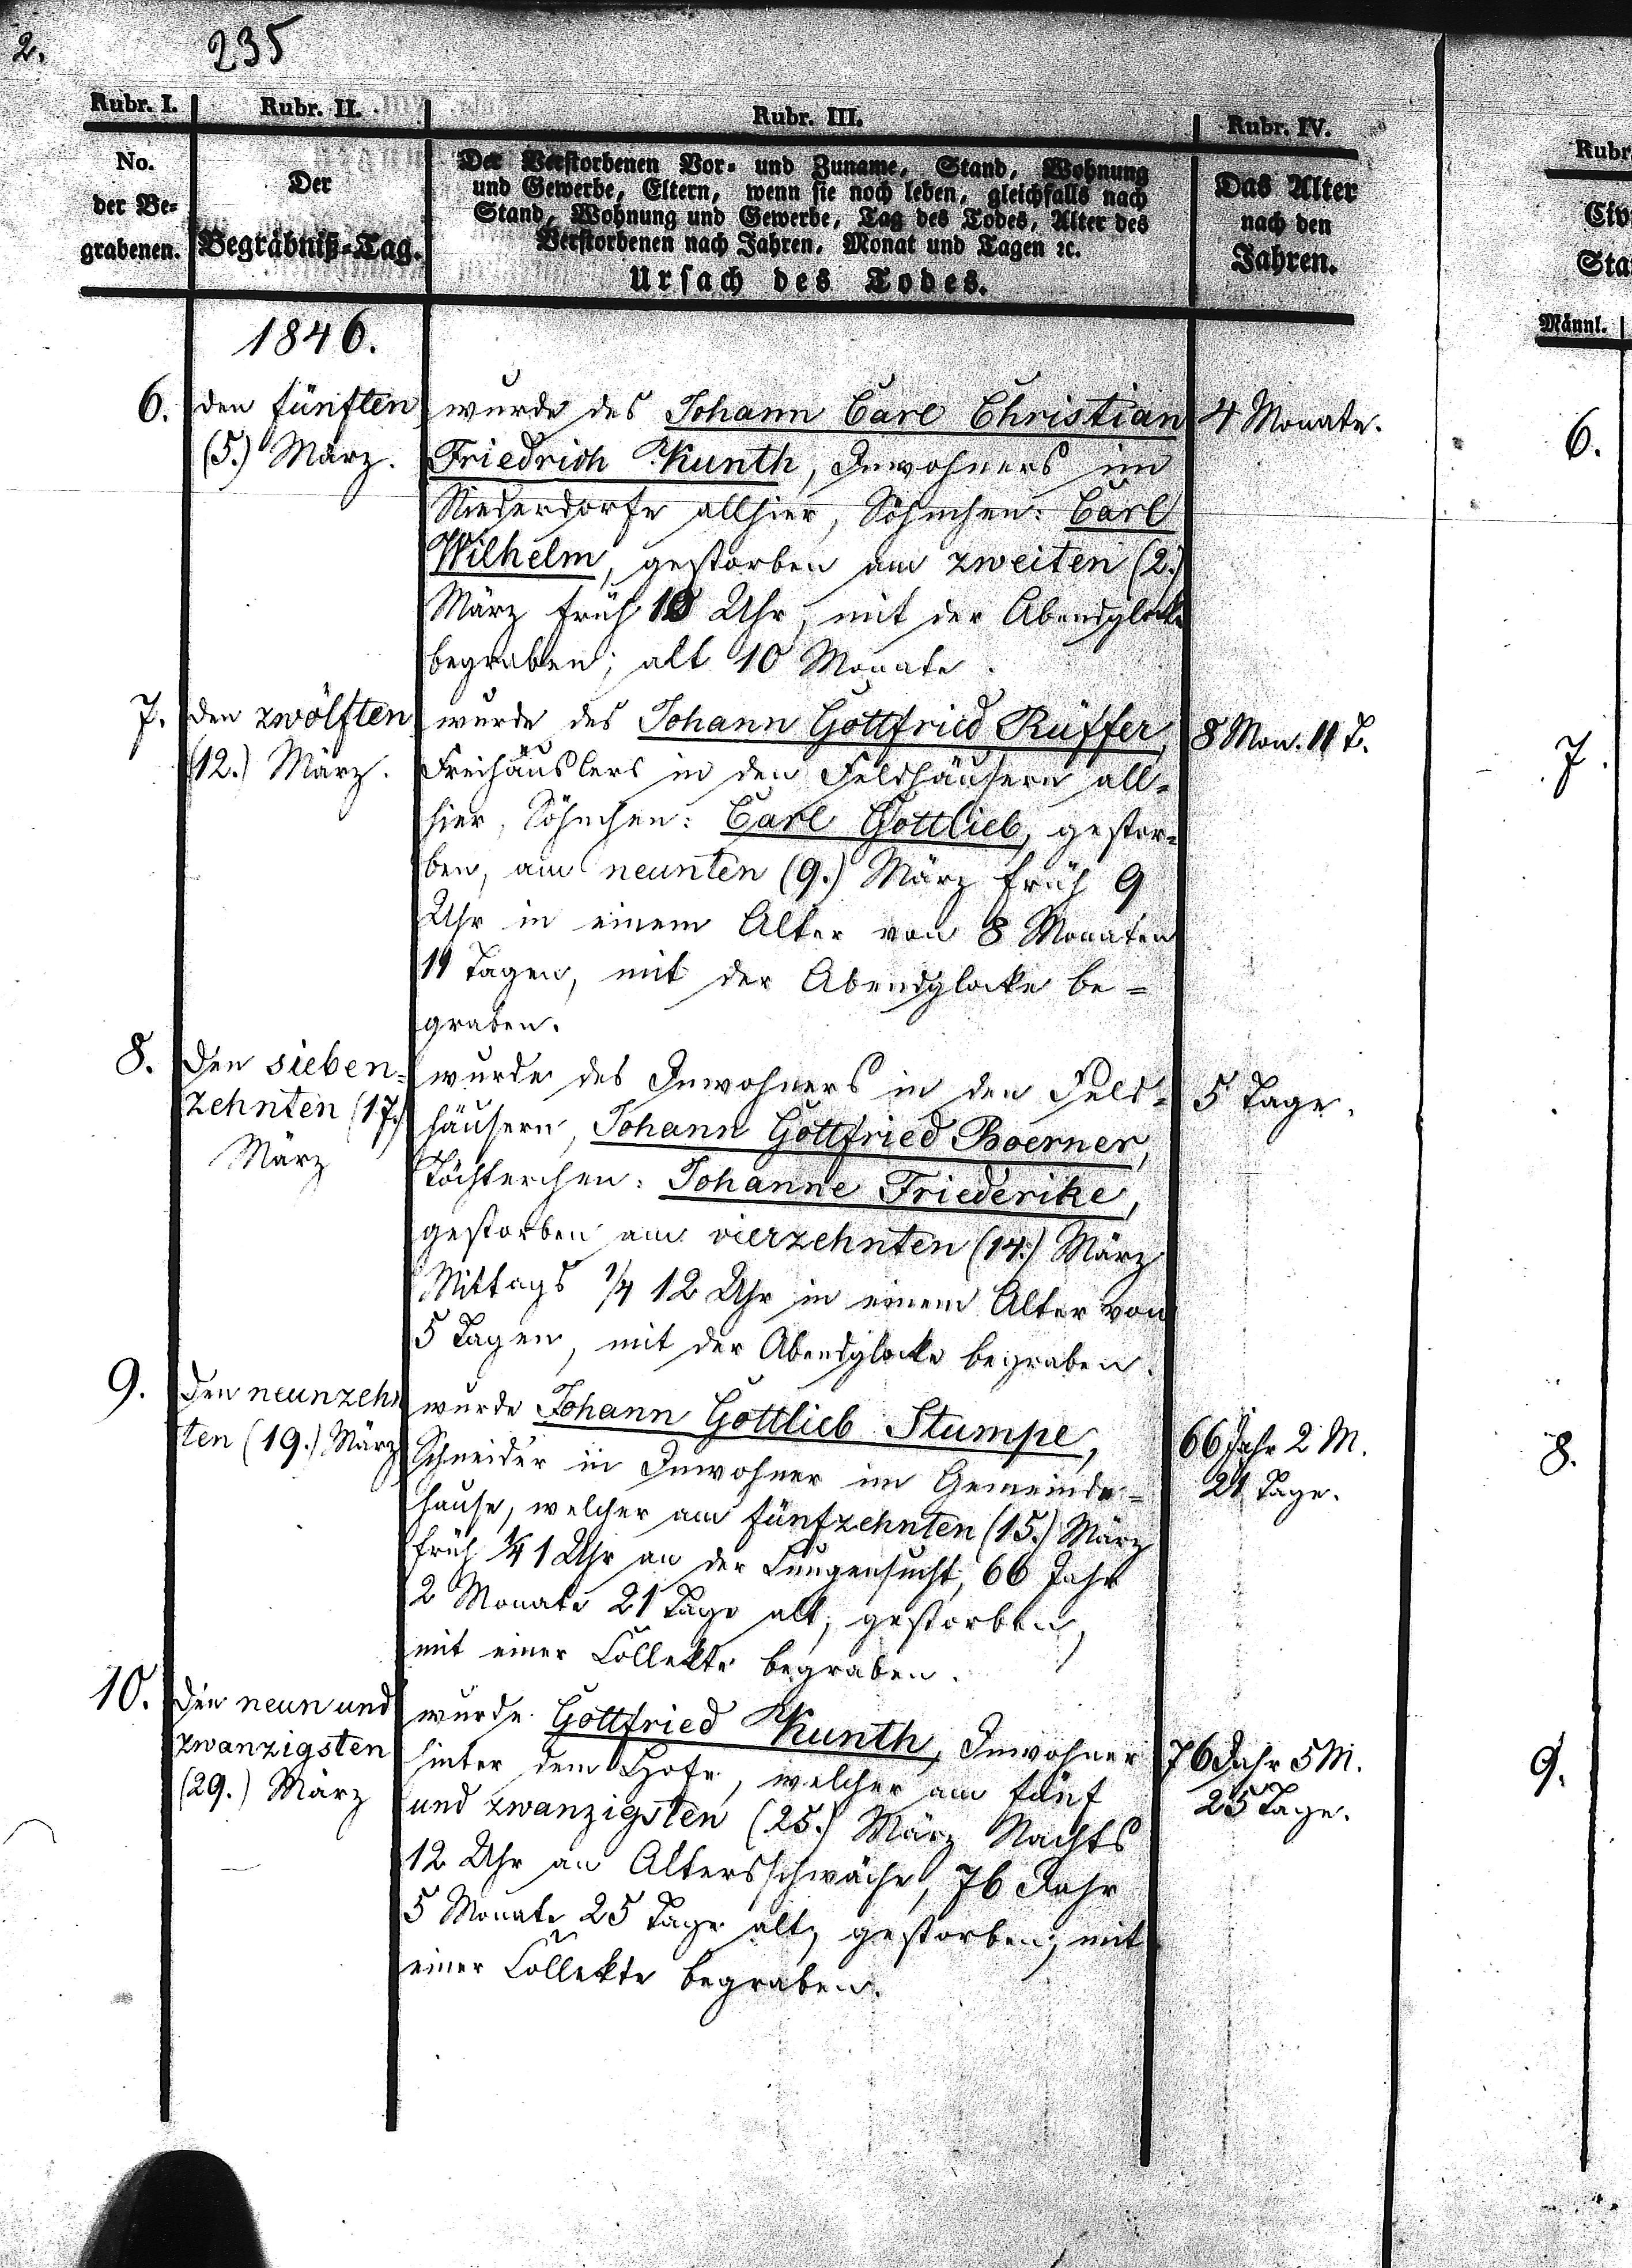 2.
235
Rubr. I.
Rubr. II.
Rubr. III.
Rubr. IV.
No.
der Be-
grabenen.
Der
Begräbniß-Tag.
Der Verstorbenen Vor- und Zuname, Stand, Wohnung
und Gewerbe, Eltern, wenn sie noch leben, gleichfalls nach
Stand, Wohnung und Gewerbe, Tag des Todes, Alter des
Verstorbenen nach Jahren, Monat und Tagen ꝛc.
Ursach des Todes.
Das Alter
nach den
Jahren.
1846.
6.
den fünften
(5.) März.
wurde des Johann Carl Christian
Friedrich Kunth, Inwohners im
Niederdorfe allhier, Söhnchen: Carl
Wilhelm, gestorben am zweiten (2.)
März früh 10 Uhr, mit der Abendglocke
begraben; alt 10 Monate.
4 Monate.
7.
den zwölften
(12.) März.
wurde des Johann Gottfried Rüffer,
Freihäuslers in den Feldhäusern all-
hier, Söhnchen: Carl Gottlieb, gestor-
ben, am neunten (9.) März früh 9
Uhr in einem Alter von 8 Monaten
11 Tagen, mit der Abendglocke be-
graben.
8 Mon. 11 T.
8.
Den sieben-
zehnten (17.)
März
wurde des Inwohners in den Feld-
häusern, Johann Gottfried Boerner,
Töchterchen: Johanne Friederike,
gestorben am vierzehnten (14.) März
Mittags 1/4 12 Uhr in einem Alter von
5 Tagen, mit der Abendglocke begraben.
5 Tage.
9.
Den neunzehn
ten (19.) März
wurde Johann Gottlieb Stumpe,
Schneider in Inwohner im Gemeinde-
hause, welcher am fünfzehnten (15.) März
früh 1/4 1 Uhr an der Lungensucht, 66 Jahr
2 Monate 21 Tage alt, gestorben,
mit einer Collekte begraben.
66 Jahr 2 M.
21 Tage.
10.
Den neun und
zwanzigsten
(29.) März
wurde Gottfried Kunth, Inwohner
hinter dem Hofe, welcher am fünf
und zwanzigsten (25.) März Nachts
12 Uhr an Altersschwäche, 76 Jahr
5 Monate 25 Tage alt, gestorben, mit
einer Collekte begraben.
76 Jahr 5 M.
25 Tage.
Rubr.
Civ
Sta
Männl.
6.
7.
8.
9.